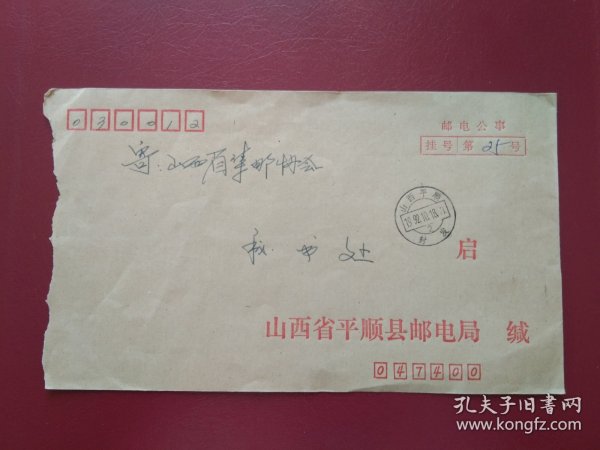 030012
邮电公事
挂号第25号
寄:山西省集邮协会
山西平顺
1992.10.18.17
封发
秘书处 启
山西省平顺县邮电局 缄
047400
孔夫子旧书网
www.kongfz.com